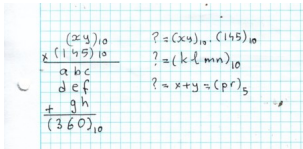 (xy)₁₀
x (145)₁₀
abc
def
+ gh
(360)₁₀
? = (xy)₁₀ . (145)₁₀
? = (klmn)₁₀
? = x+y = (pr)₅